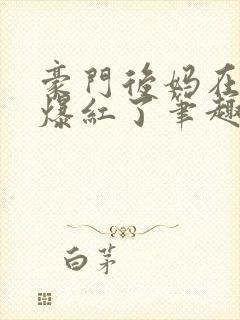 豪門後媽在
爆紅了筆趣
白茅